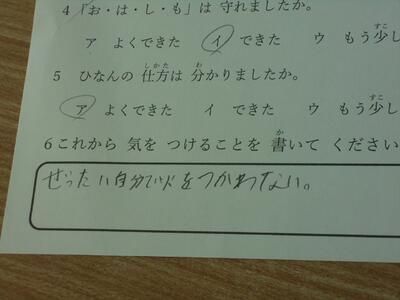 4 「お・は・し・も」は 守れましたか。
ア よくできた イ できた ウ もう少し
5 ひなんの 仕方は 分かりましたか。
ア よくできた イ できた ウ もう少し
6 これから 気を つけることを 書いて ください
ぜったい自分で火をつかわない。